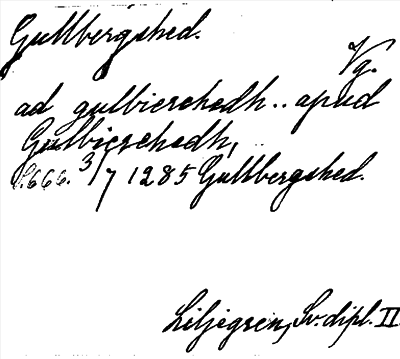 Gullbergshed.
Vg.
ad gulbierehedh.. apud
Gulbierehedh,
S.666. 3/7 1285 Gullbergshed.
Liljegren, Sv. dipl. II